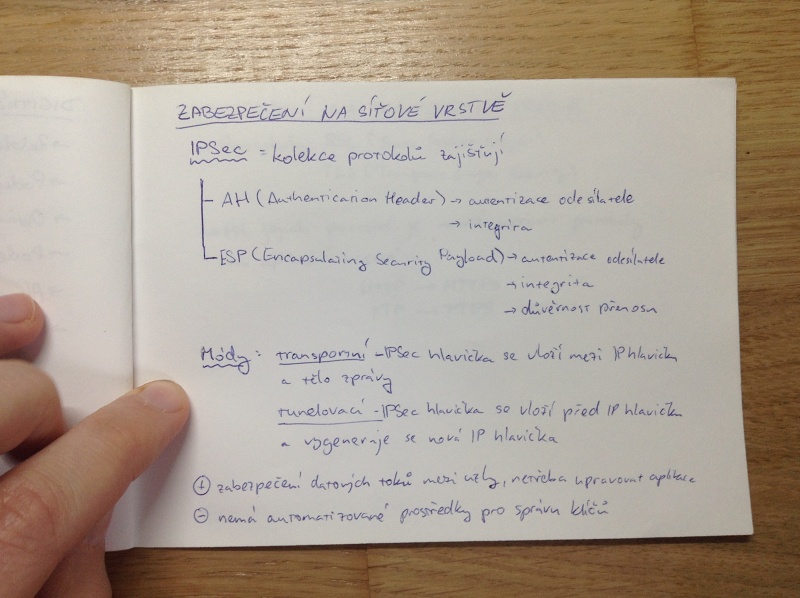 ZABEZPEČENÍ NA SÍŤOVÉ VRSTVĚ
IPSec = kolekce protokolů zajišťují
AH (Authentication Header) → autentizace odesílatele
→ integrita
ESP (Encapsulating Security Payload) → autentizace odesílatele
→ integrita
→ důvěrnost přenosu
Módy: transportní - IPSec hlavička se vloží mezi IP hlavičku
a tělo zprávy
tunelovací - IPSec hlavička se vloží před IP hlavičku
a vygeneruje se nová IP hlavička
⊕ zabezpečení datových toků mezi uzly, netřeba upravovat aplikace
⊖ nemá automatizované prostředky pro správu klíčů